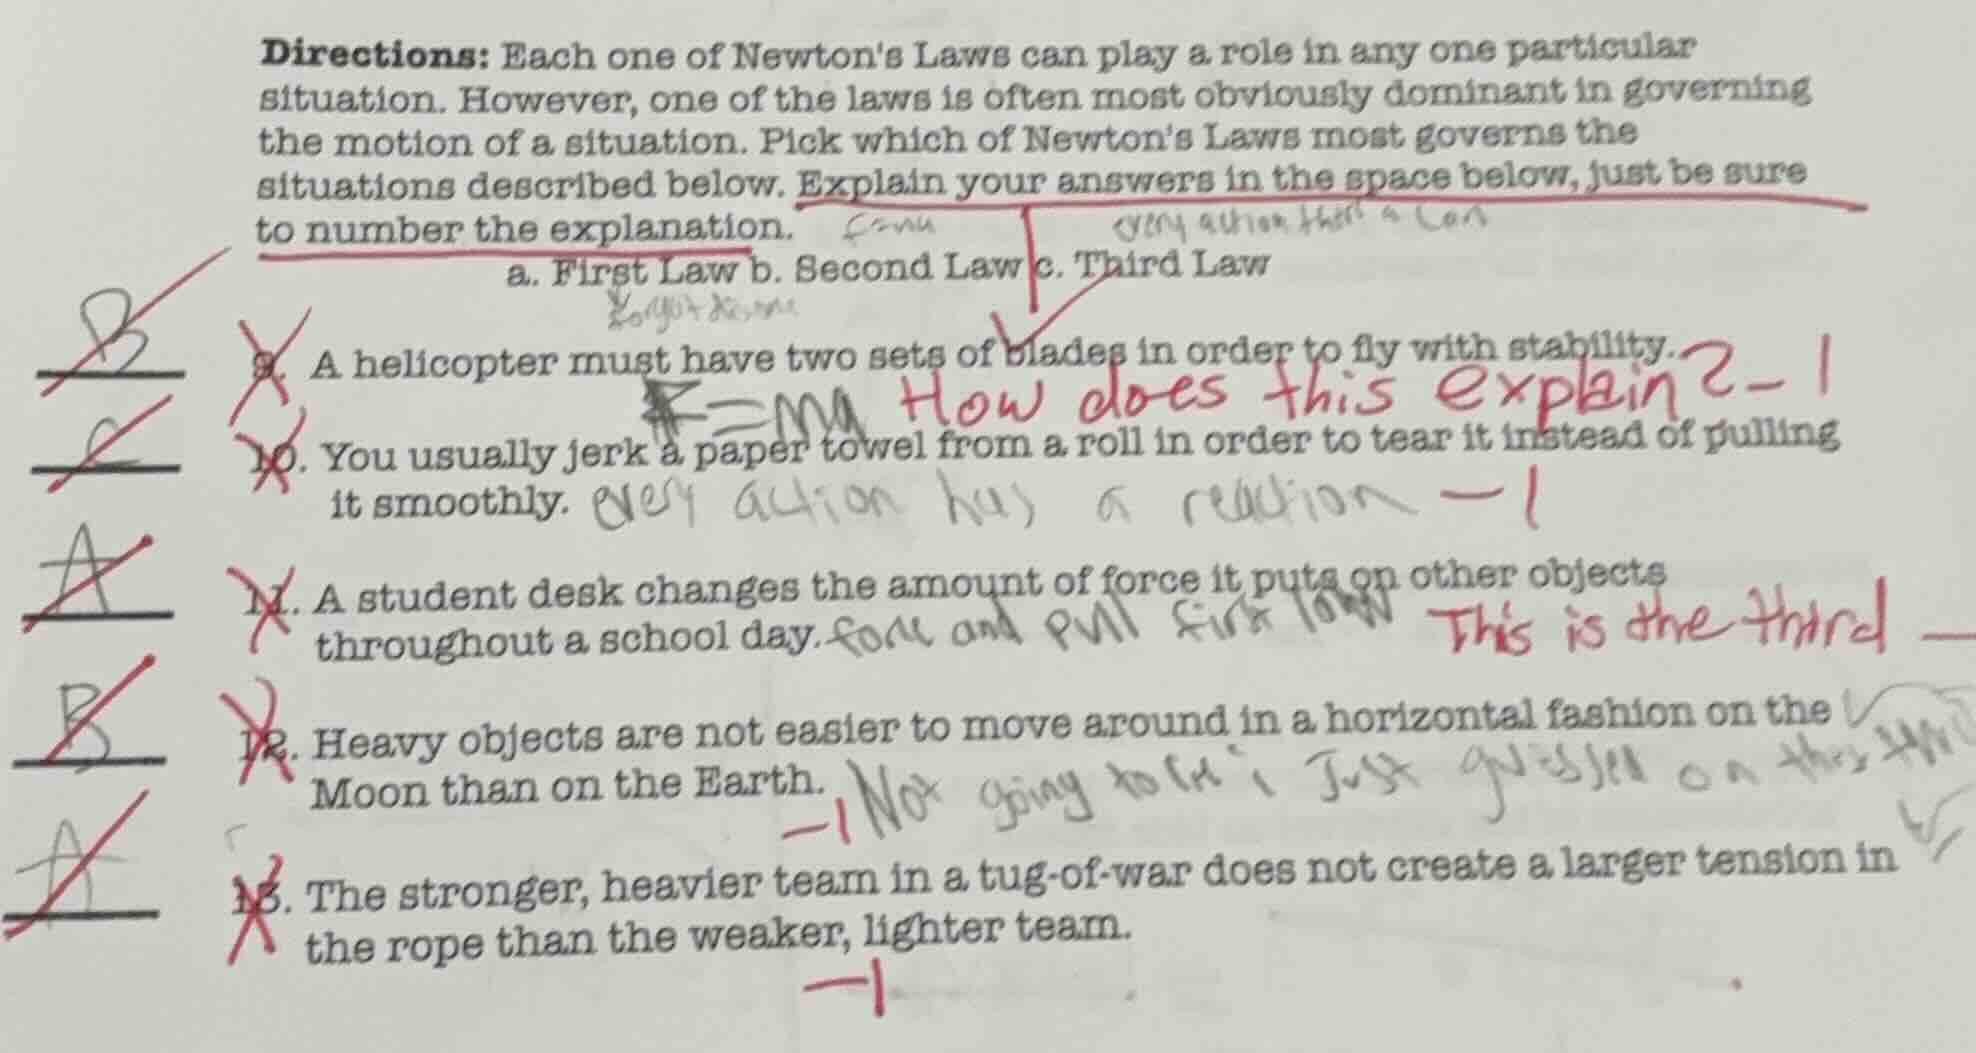 Directions: Each one of Newton's Laws can play a role in any one particular
situation. However, one of the laws is often most obviously dominant in governing
the motion of a situation. Pick which of Newton's Laws most governs the
situations described below. Explain your answers in the space below, just be sure
to number the explanation.
every action
a. First Law b. Second Law c. Third Law
forgot
B 9. A helicopter must have two sets of blades in order to fly with stability.
F=ma How does this explain? -1
C 10. You usually jerk a paper towel from a roll in order to tear it instead of pulling
it smoothly. every action has a reaction -1
A 11. A student desk changes the amount of force it puts on other objects
throughout a school day. force and pull first law This is the third -
B 12. Heavy objects are not easier to move around in a horizontal fashion on the
Moon than on the Earth. -1 Not going to lie i Just guessed on this
A 13. The stronger, heavier team in a tug-of-war does not create a larger tension in
the rope than the weaker, lighter team.
-1